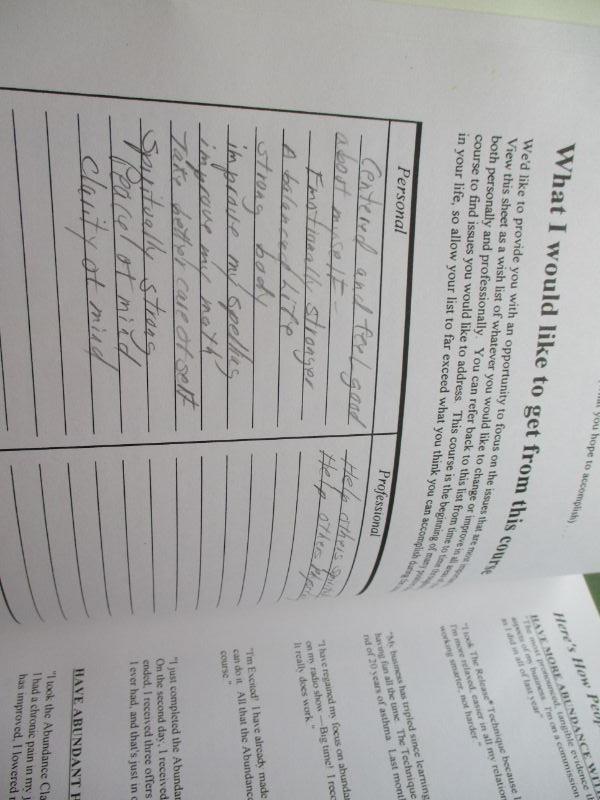 you hope to accomplish
What I would like to get from this course
We'd like to provide you with an opportunity to focus on the issues that are now
View this sheet as a wish list of whatever you would like to change or improve in
both personally and professionally. You can refer back to this list from time to time
course to find issues you would like to address. This course is the beginning of many
in your life, so allow your list to far exceed what you think you can accomplish during
Personal
Professional
Centered and feel good
about myself -
Emotionally stronger
A balanced life
strong body
improve my spelling
improve my math
Take better care of self
Spiritually strong
Peace of mind
Clarity of mind
Help others
Help others
Here's How
HAVE MORE ABUNDANCE
"The most pronounced, tangible evidence
aspects of my business. I'm on a commission
as I did in all of last year"
"I took The Release® Technique because I
I'm more relaxed, easier in all my relation
working smarter, not harder."
"My business has tripled since learning
having fun all the time. The Technique
rid of 20 years of asthma. Last mont
"I have regained my focus on abundan
on my radio show — Big time! I rece
It really does work."
"I'm Excited! I have already made
can do it. All that the Abundance
course."
"I just completed the Abundan
On the second day, I received
ended, I received three offers
I ever had, and that's just in
HAVE ABUNDANT
"I took the Abundance Cla
I had a chronic pain in my
has improved, I lowered